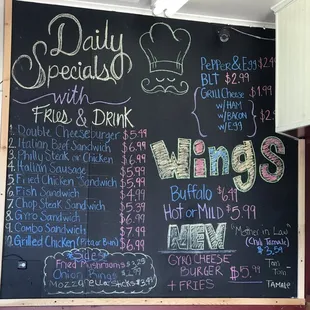 Daily
Specials
with
FRIES & DRINK
1. Double Cheeseburger $5.99
2. Italian Beef Sandwich $6.99
3. Philly Steak or Chicken $6.99
4. Italian Sausage $5.99
5. Fried Chicken Sandwich $5.99
6. Fish Sandwich $4.99
7. Chop Steak Sandwich $5.99
8. Gyro Sandwich $6.99
9. Combo Sandwich $7.99
Grilled Chicken (Pita or Bun) $6.99
Sides
Fried Mushrooms $3.29
Onion Rings $2.79
Mozzarella sticks $3.99
PEPPER & EGG $2.99
BLT $2.99
GRILL CHEESE $1.99
w/HAM
w/BACON
w/EGG
Wings
BUFFALO $6.49
HOT or MILD $5.99
NEW
GYRO CHEESE
BURGER
+ FRIES
$5.99
"Mother in Law"
(Chili Tamale)
$3.59
Tom
Tom
TAMALE